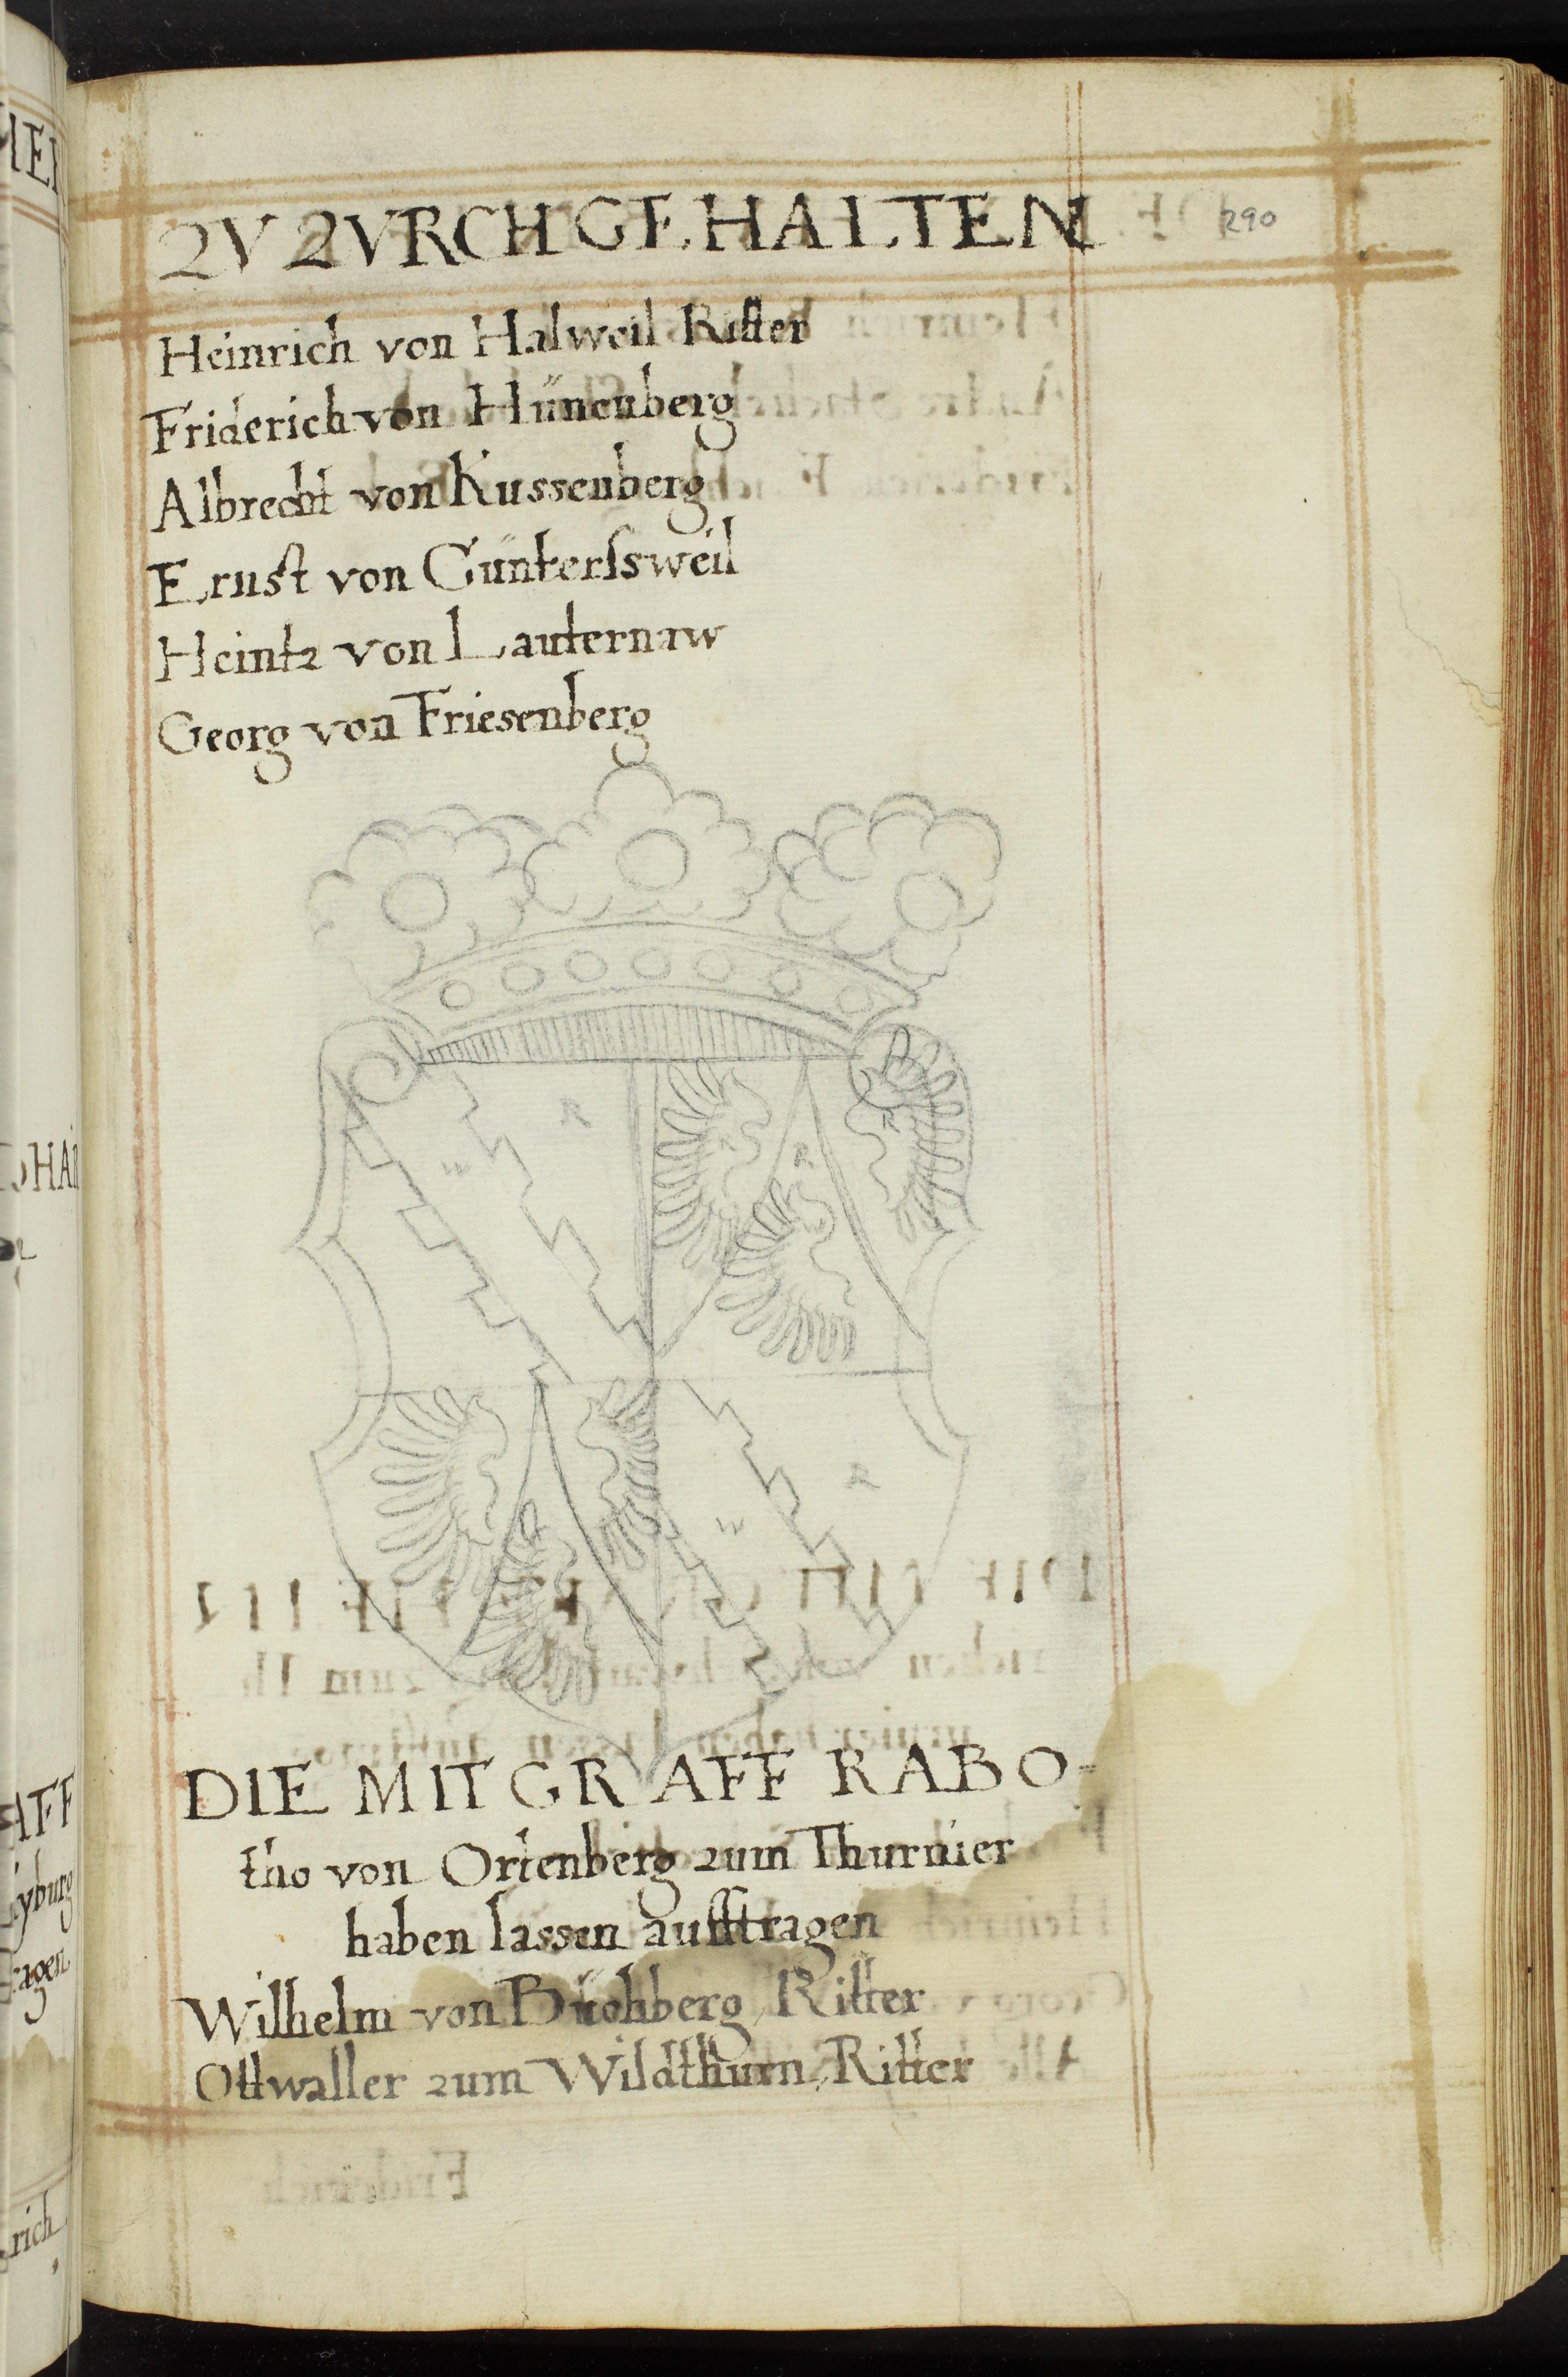 ZV ZVRCH GEHALTEN
290
Heinrich von Halweil Ritter
Friderich von Hünenberg
Albrecht von Kussenberg
Ernst von Günterssweil
Heintz von Lauternaw
Georg von Friesenberg
R
W
R
R
R
W
DIE MIT GRAFF RABO-
tho von Ortenberg zum Thurnier
haben lassen aufftragen
Wilhelm von Buchberg, Ritter
Ottwaller zum Wildthurn, Ritter